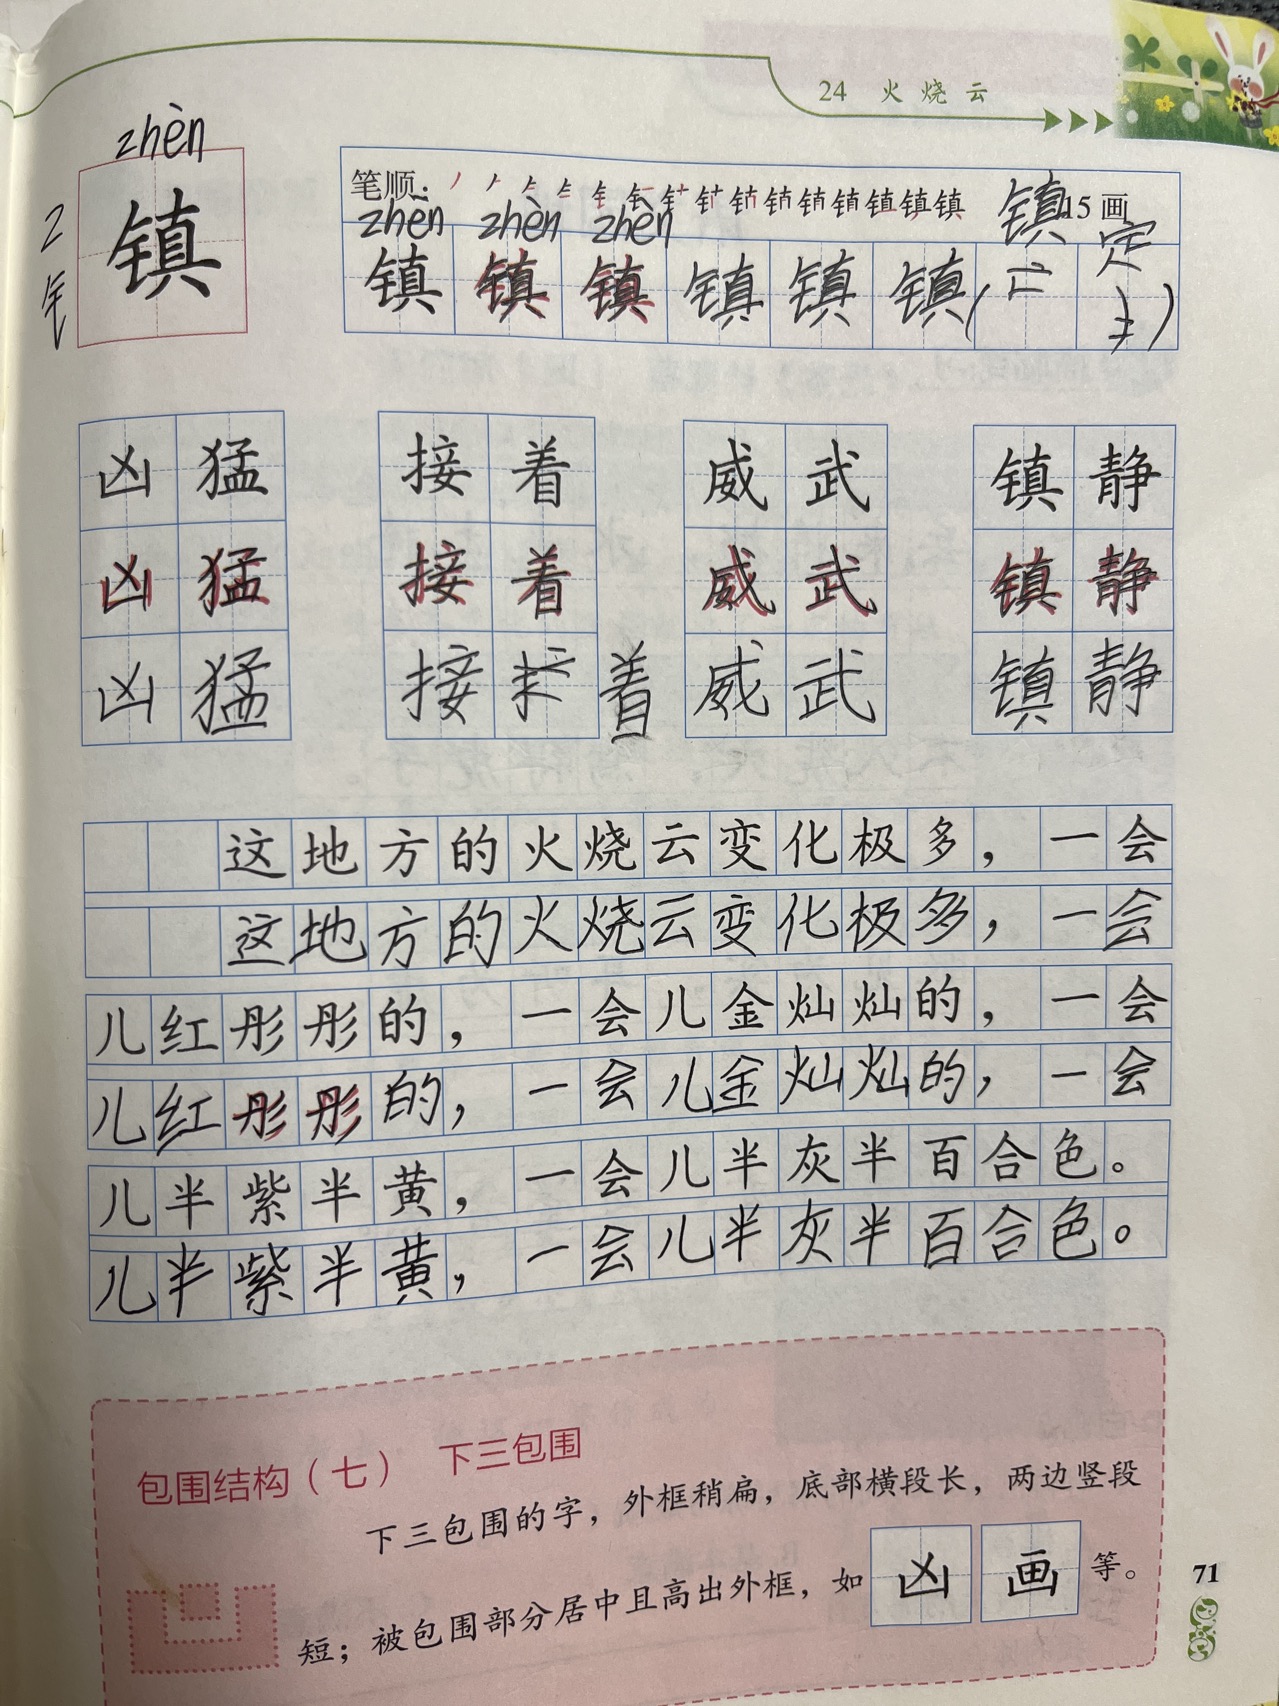 24 火烧云
zhèn
镇
2
钅
笔顺: 镇 15画
zhèn zhèn zhèn
镇 镇 镇 镇 镇 镇
凶猛 接着 威武 镇静
凶猛 接着 威武 镇静
凶猛 接 着 威武 镇静
这地方的火烧云变化极多，一会
这地方的火烧云变化极多，一会
儿红彤彤的，一会儿金灿灿的，一会
儿红彤彤的，一会儿金灿灿的，一会
儿半紫半黄，一会儿半灰半百合色。
儿半紫半黄，一会儿半灰半百合色。
包围结构（七） 下三包围
下三包围的字，外框稍扁，底部横段长，两边竖段
短；被包围部分居中且高出外框，如 凶 画 等。
71